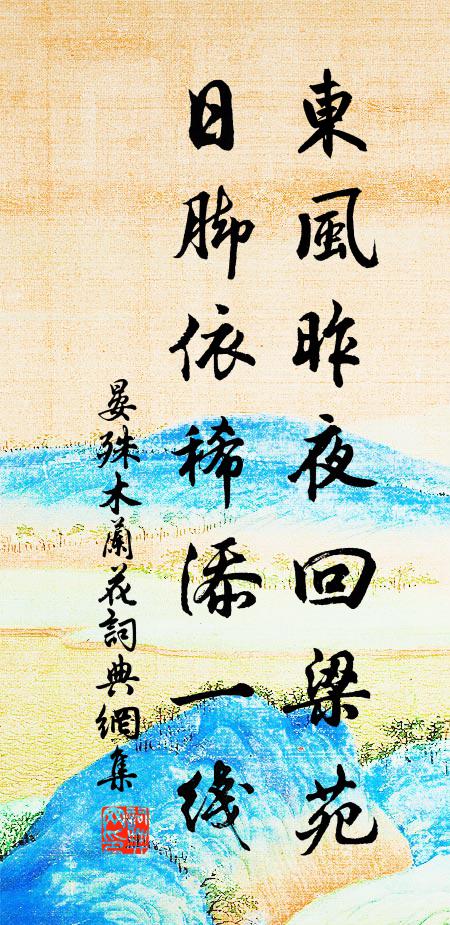 東風昨夜回梁苑
日脚依稀添一线
晏殊木蘭花詞典網集